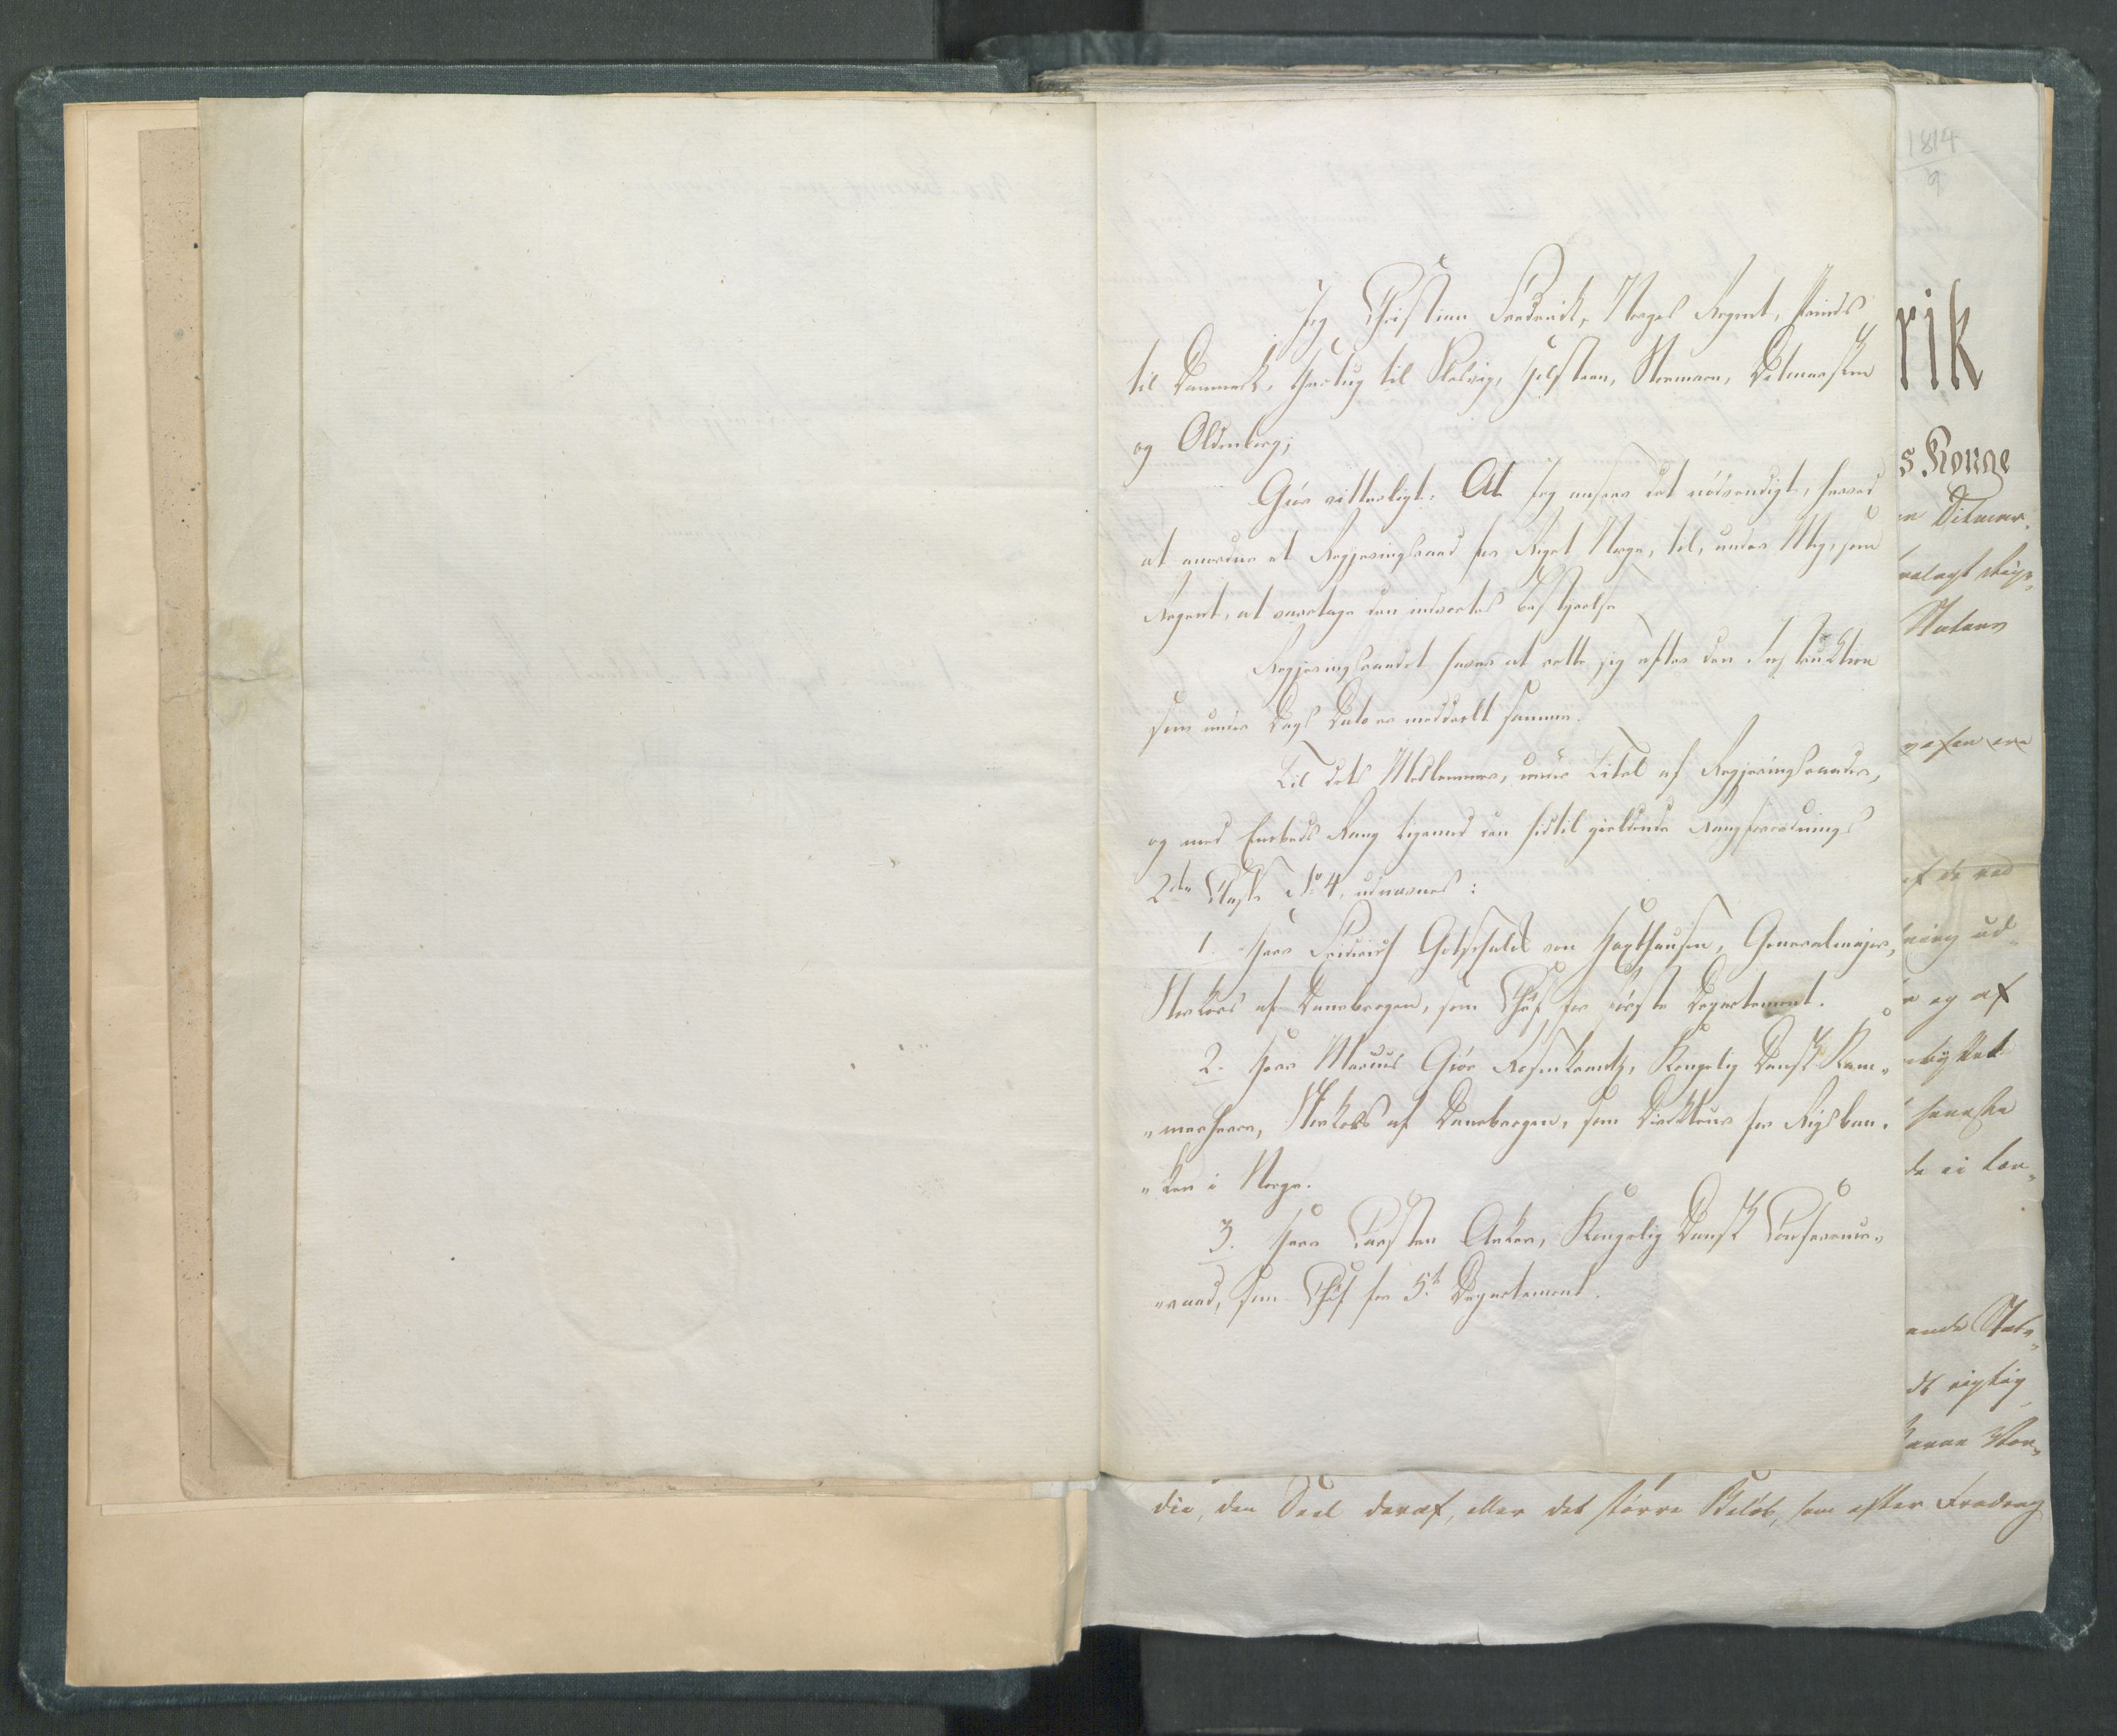 Jeg Christian Frederik, Norges Regent, Prinds
til Danmark, Hertug til Slesvig, Holsteen, Stormarn, Ditmarsken
og Oldenborg;
Giør vitterligt: At Jeg anseer det nödvendigt, herved
at anordne et Regjeringsraad for Riget Norge, til, under Mig, som
Regent, at varetage den indvortes Bestyrelse
Regjeringsraadet haver at rette sig efter den Instruktion
som under Dags Dato er meddeelt samme.
Til dets Medlemmer, under Titel af Regjeringsraader,
og med Embeds Rang ligemed den hidtil gieldende Rangforordnings
2den Classe No 4, udnævnes:
1. Herr Friderich Gotschalck von Haxthausen, Generalmajor,
Storkors af Dannebrogen, som Chef for første Departement.
2. Herr Marcus Giøe Rosenkrantz, Kongelig Dansk Kam„
„merherre, Storkors af Dannebrogen, som Direkteur for Rigsban„
„ken i Norge.
3. Herr Carsten Anker, Kongelig Dansk Conferentz„
„raad, som Chef for 5te Departement.
1814
9
rik
s Konge
Ditmar„
Statens
af de ved
ning ud„
og af
seneste
de ei kon„
ende Stats„
rigtig
die, den Deel deraf, eller det større Beløb, som efter Fradrag